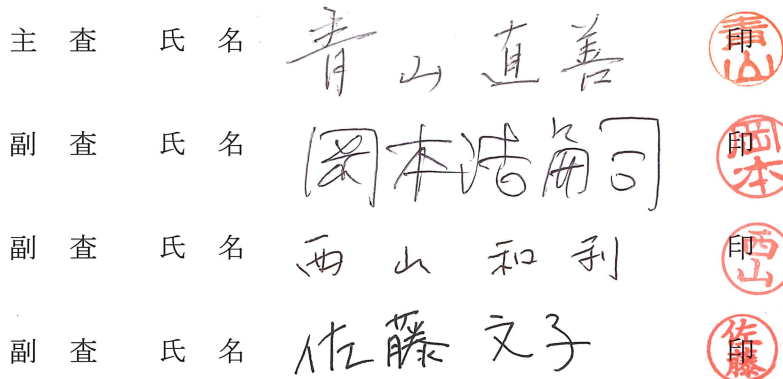 主 査 氏 名 青 山 直 善 印 青山
副 査 氏 名 岡本浩 司 印 岡本
副 査 氏 名 西 山 和 利 印 西山
副 査 氏 名 佐藤 文子 印 佐藤